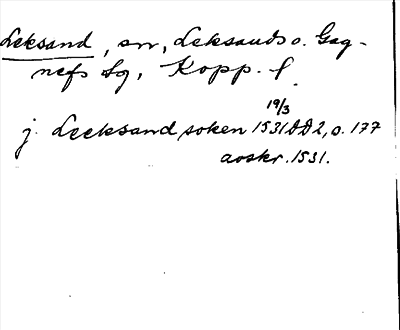 Leksand, sn, Leksands o. Gag-
nefs tg, Kopp. l.
19/3
j Leeksand soken 1531 DD2, o. 177
avskr. 1531.